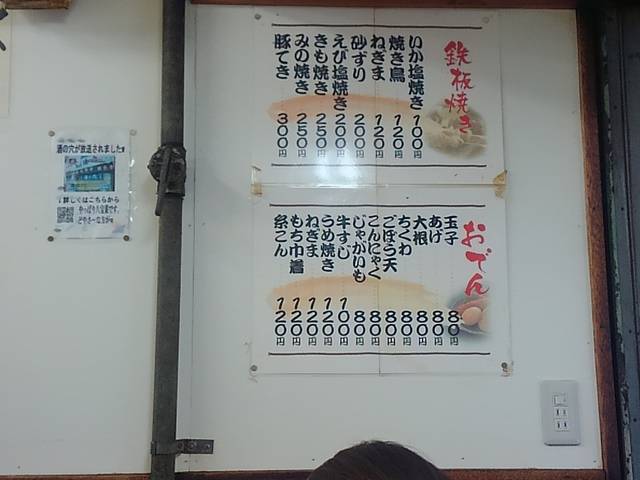 鉄板焼き
いか塩焼き 100円
焼き鳥 120円
ねぎま 120円
砂ずり 200円
えび塩焼き 200円
きも焼き 250円
みの焼き 250円
豚てき 300円
おでん
玉子 80円
あげ 80円
大根 80円
ちくわ 80円
ごぼう天 80円
こんにゃく 80円
じゃがいも 80円
牛すじ 100円
うめ焼き 120円
ねぎま 120円
もち巾着 120円
糸こん 120円
酒の穴が放送されました
↓詳しくはこちらから